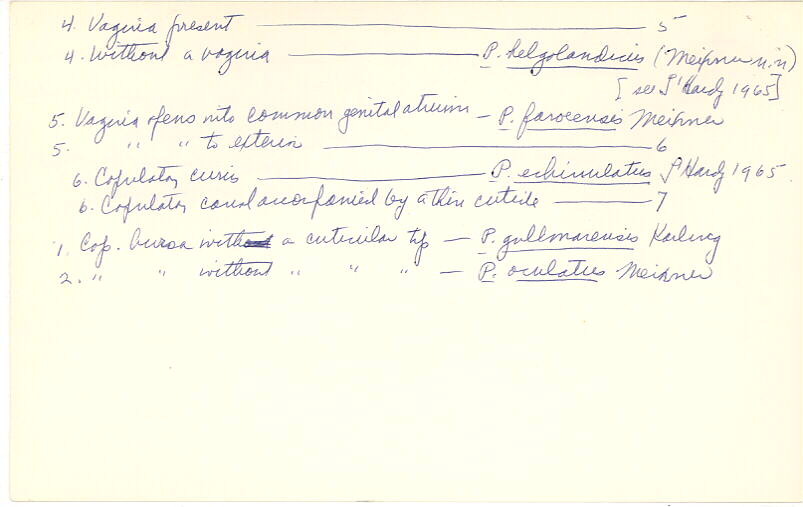 4. Vagina present ——— 5
4. Without a vagina ——— P. helgolandicus (Meixner n.n)
[see L'Hardy 1965]
5. Vagina opens into common genital atrium — P. faroeensis Meixner
5. " " to exterior ——— 6
6. Copulatory cirrus ——— P. echinulatus L'Hardy 1965.
6. Copulatory canal accompanied by a thin cuticle ——— 7
1. Cop. bursa with a cuticular tip — P. gullmarensis Karling
2. " " without " " " — P. oculatus Meixner